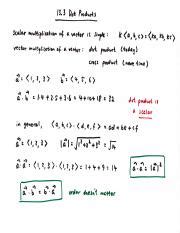 13.3 Dot Products
scalar multiplication of a vector is single: k⟨a,b,c⟩ = ⟨ka,kb,kc⟩
vector multiplication of a vector: dot product (today)
cross product (next time)
a⃗ = ⟨1,2,3⟩ b⃗ = ⟨4,5,6⟩
a⃗·b⃗ = 1·4+2·5+3·6 = 4+10+18 = 32
dot product is a scalar
in general, ⟨a,b,c⟩·⟨d,e,f⟩ = ad+be+cf
a⃗ = ⟨1,2,3⟩ |a⃗| = √1²+2²+3² = √14
a⃗·a⃗ = ⟨1,2,3⟩·⟨1,2,3⟩ = 1+4+9 = 14
a⃗·a⃗ = |a⃗|²
a⃗·b⃗ = b⃗·a⃗ order doesn't matter